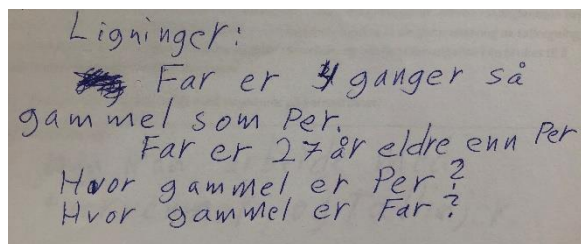 Ligninger:
Far er 4 ganger så
gammel som Per.
Far er 27 år eldre enn Per
Hvor gammel er Per?
Hvor gammel er Far?